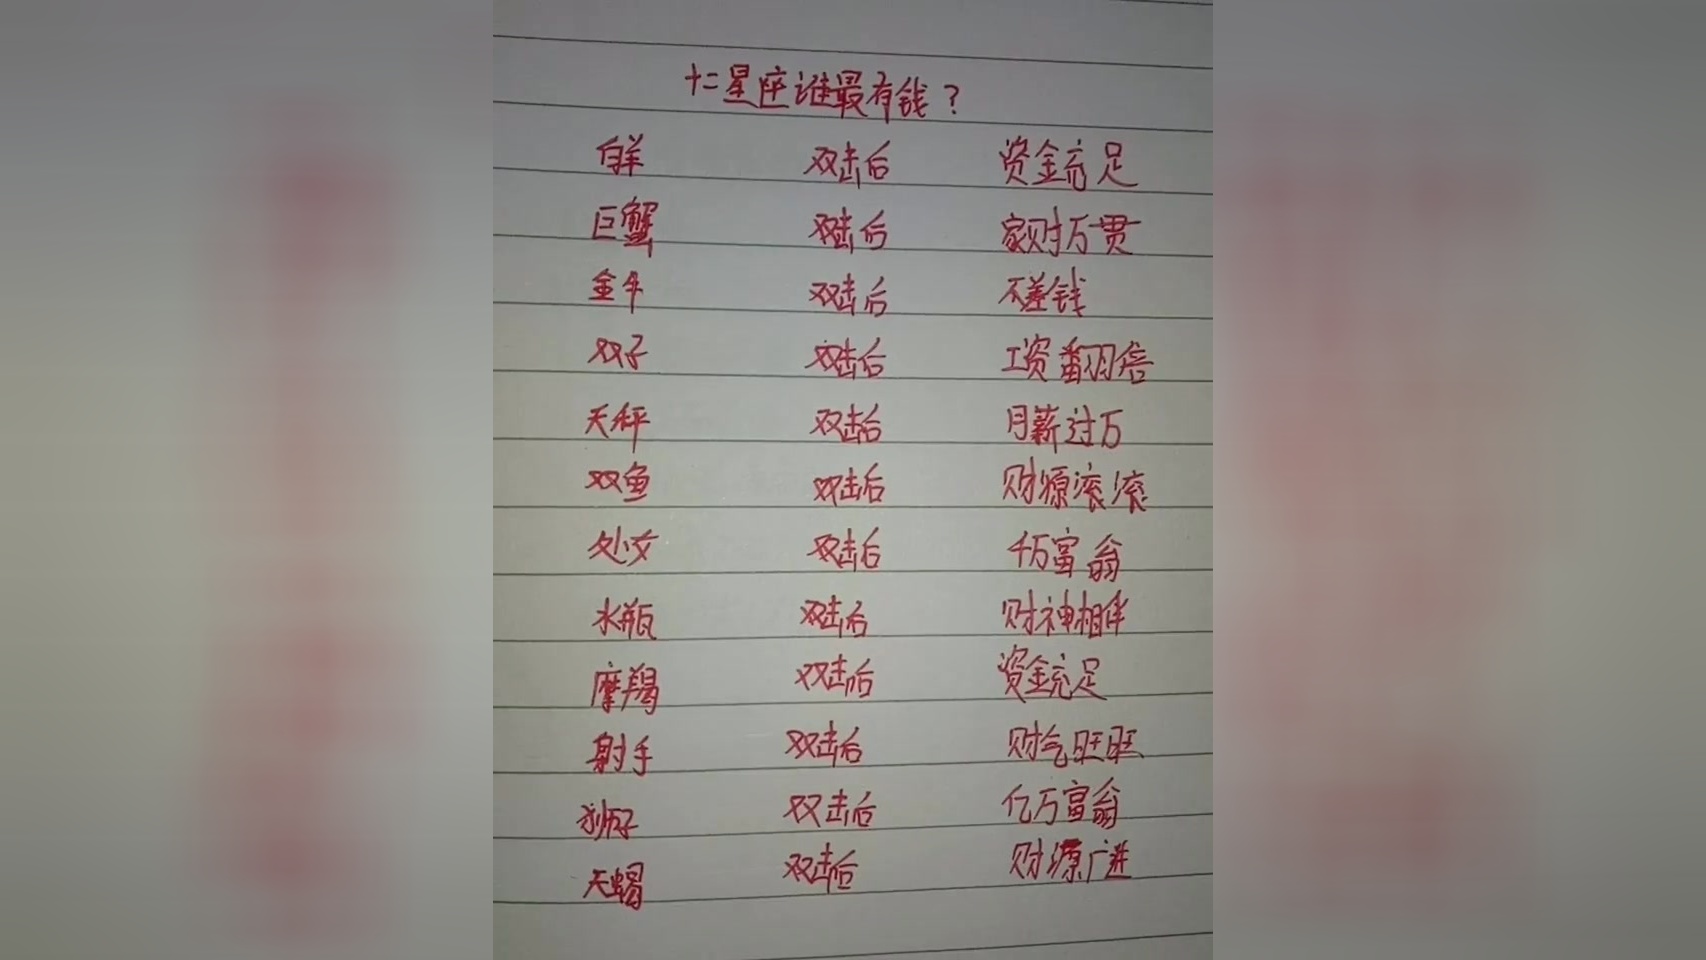 十二星座谁最有钱?
白羊 双击后 资金充足
巨蟹 双击后 家财万贯
金牛 双击后 不差钱
双子 双击后 工资翻倍
天秤 双击后 月薪过万
双鱼 双击后 财源滚滚
处女 双击后 千万富翁
水瓶 双击后 财神相伴
摩羯 双击后 资金充足
射手 双击后 财气旺旺
狮子 双击后 亿万富翁
天蝎 双击后 财源广进